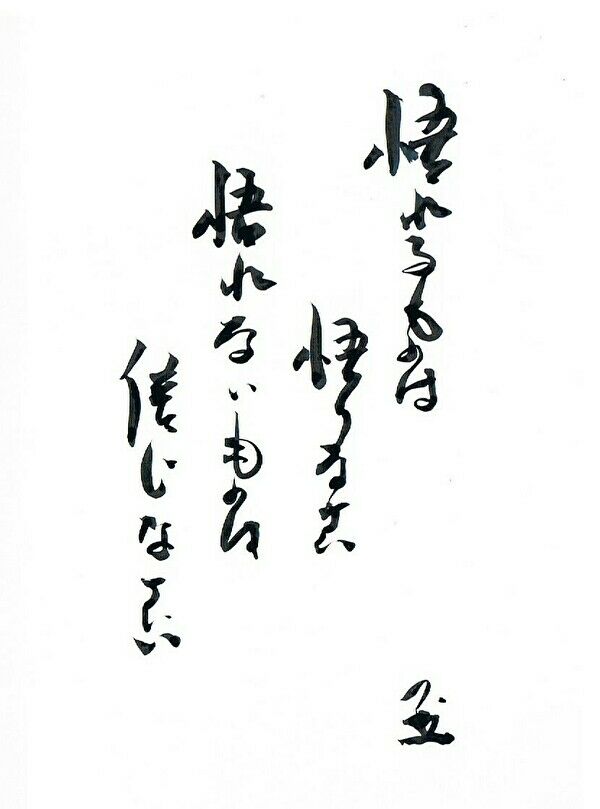 悟れるものは
悟りなさい
悟れないものは
信じなさい